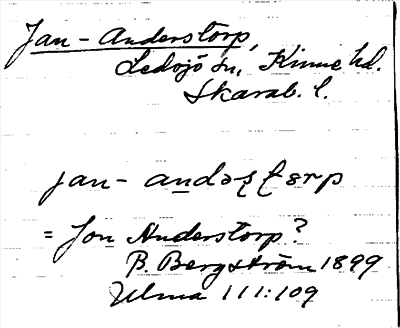 Jan-Anderstorp,
Ledsjö sn, Kinne hd.
Skarab. l.
jan- andəʂʈɵrp
= Jon Anderstorp?
B. Bergström 1899
Ulma 111:109